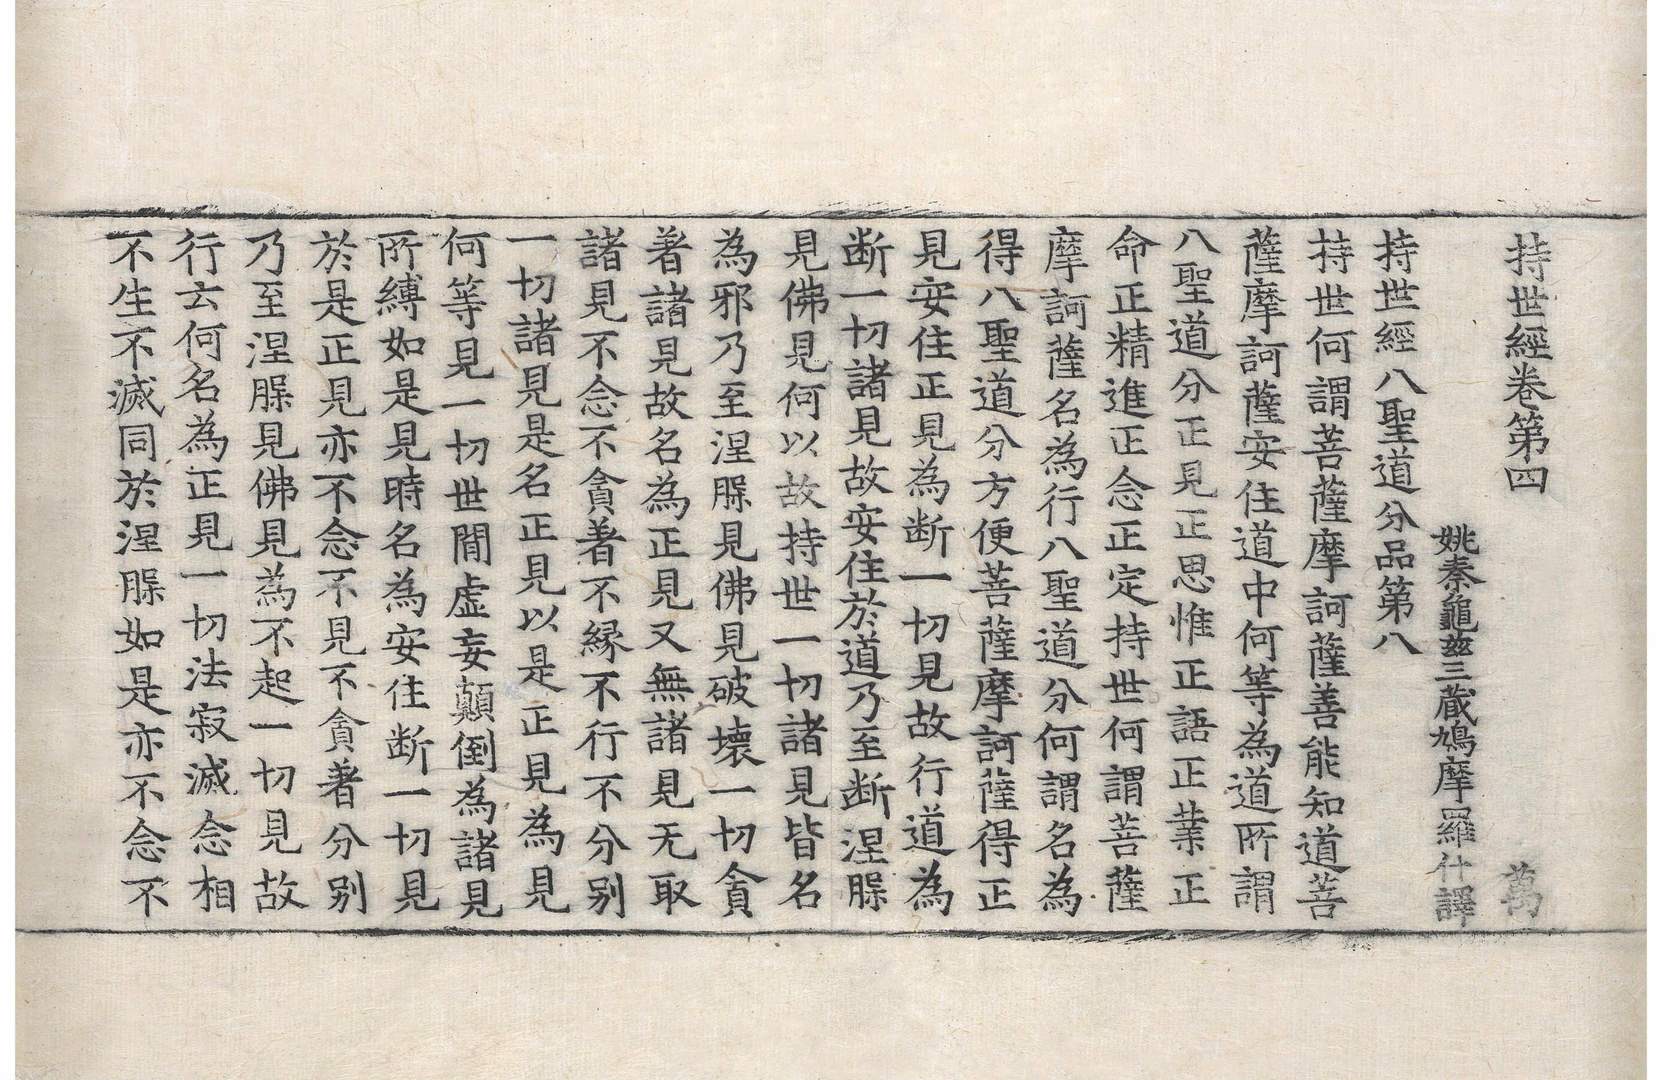 持世經卷第四 萬
姚秦龜茲三藏鳩摩羅什譯
持世經八聖道分品第八
持世何謂菩薩摩訶薩善能知道菩
薩摩訶薩安住道中何等為道所謂
八聖道分正見正思惟正語正業正
命正精進正念正定持世何謂菩薩
摩訶薩名為行八聖道分何謂名為
得八聖道分方便菩薩摩訶薩得正
見安住正見為断一切見故行道為
断一切諸見故安住於道乃至断涅槃
見佛見何以故持世一切諸見皆名
為邪乃至涅槃見佛見破壞一切貪
著諸見故名為正見又無諸見无取
諸見不念不貪著不緣不行不分别
一切諸見是名正見以是正見為見
何等見一切世間虛妄顛倒為諸見
所縛如是見時名為安住断一切見
於是正見亦不念不見不貪著分别
乃至涅槃見佛見為不起一切見故
行云何名為正見一切法寂滅念相
不生不滅同於涅槃如是亦不念不